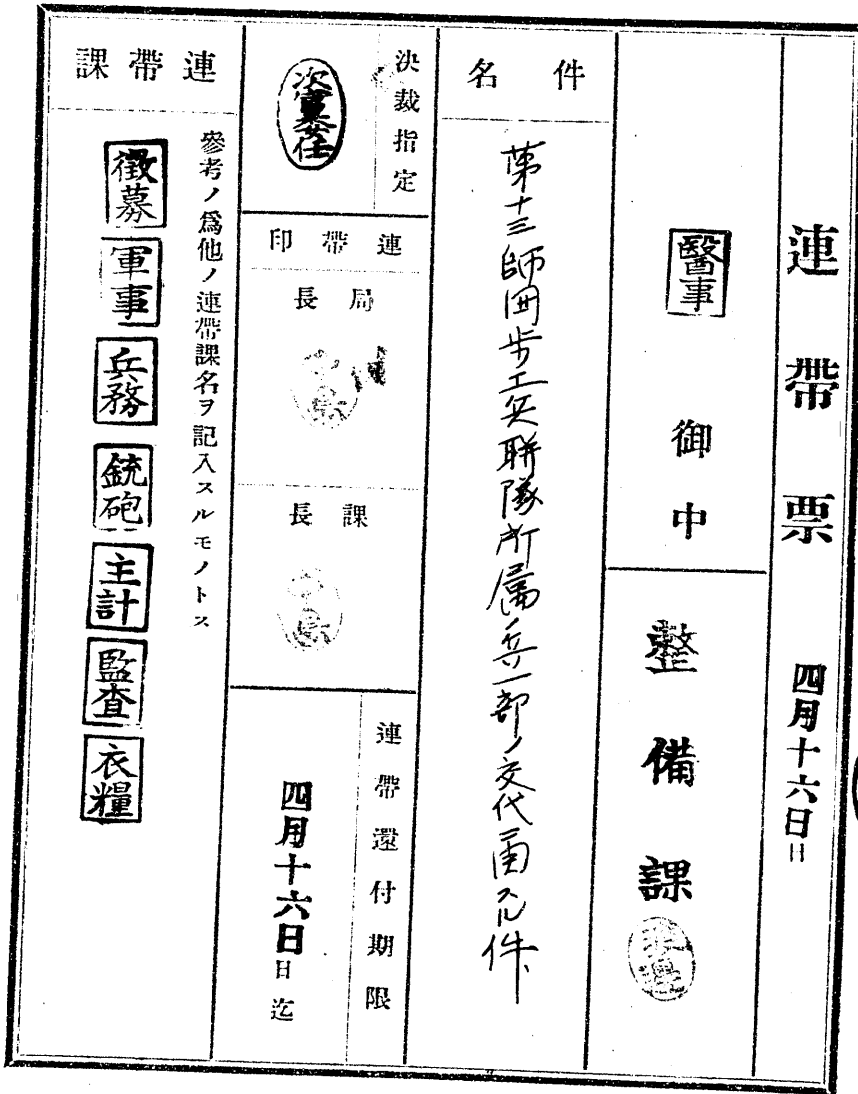 連帶票 四月十六日日
醫事 御中
整備課
件名
第十三師団歩工兵聯隊所属ノ兵一部ノ交代ニ関スル件
決裁指定
次官委任
連帶印
局長
課長
連帶還付期限
四月十六日日迄
連帶課
參考ノ爲他ノ連帶課名ヲ記入スルモノトス
徴募 軍事 兵務 銃砲 主計 監査 衣糧